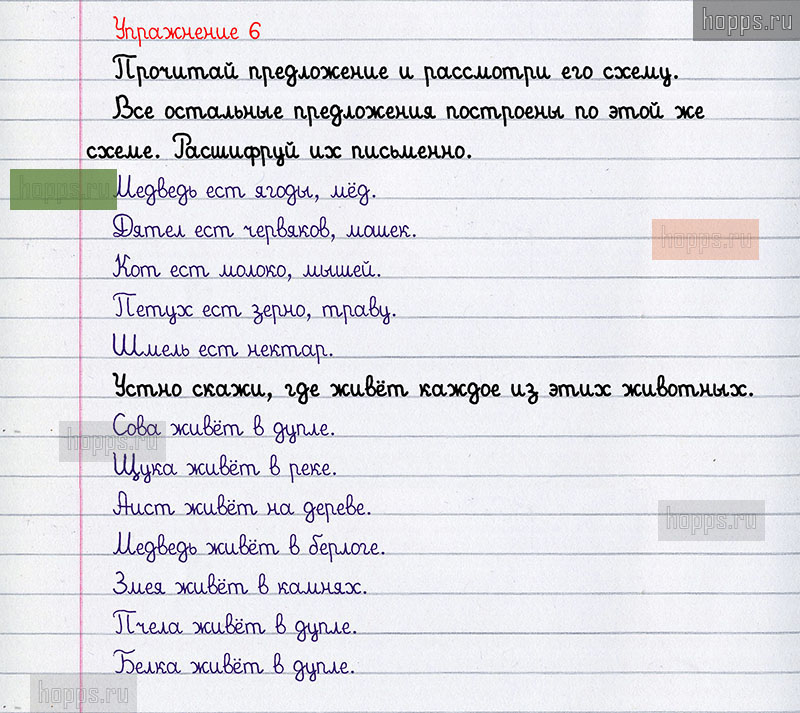 hopps.ru
Упражнение 6
Прочитай предложение и рассмотри его схему.
Все остальные предложения построены по этой же
схеме. Расшифруй их письменно.
hopps.ru
Медведь ест ягоды, мёд.
Дятел ест червяков, мошек.
hopps.ru
Кот ест молоко, мышей.
Петух ест зерно, траву.
Шмель ест нектар.
Устно скажи, где живёт каждое из этих животных.
Сова живёт в дупле.
hopps.ru
Щука живёт в реке.
Аист живёт на дереве.
hopps.ru
Медведь живёт в берлоге.
Змея живёт в камнях.
Пчела живёт в дупле.
Белка живёт в дупле.
hopps.ru